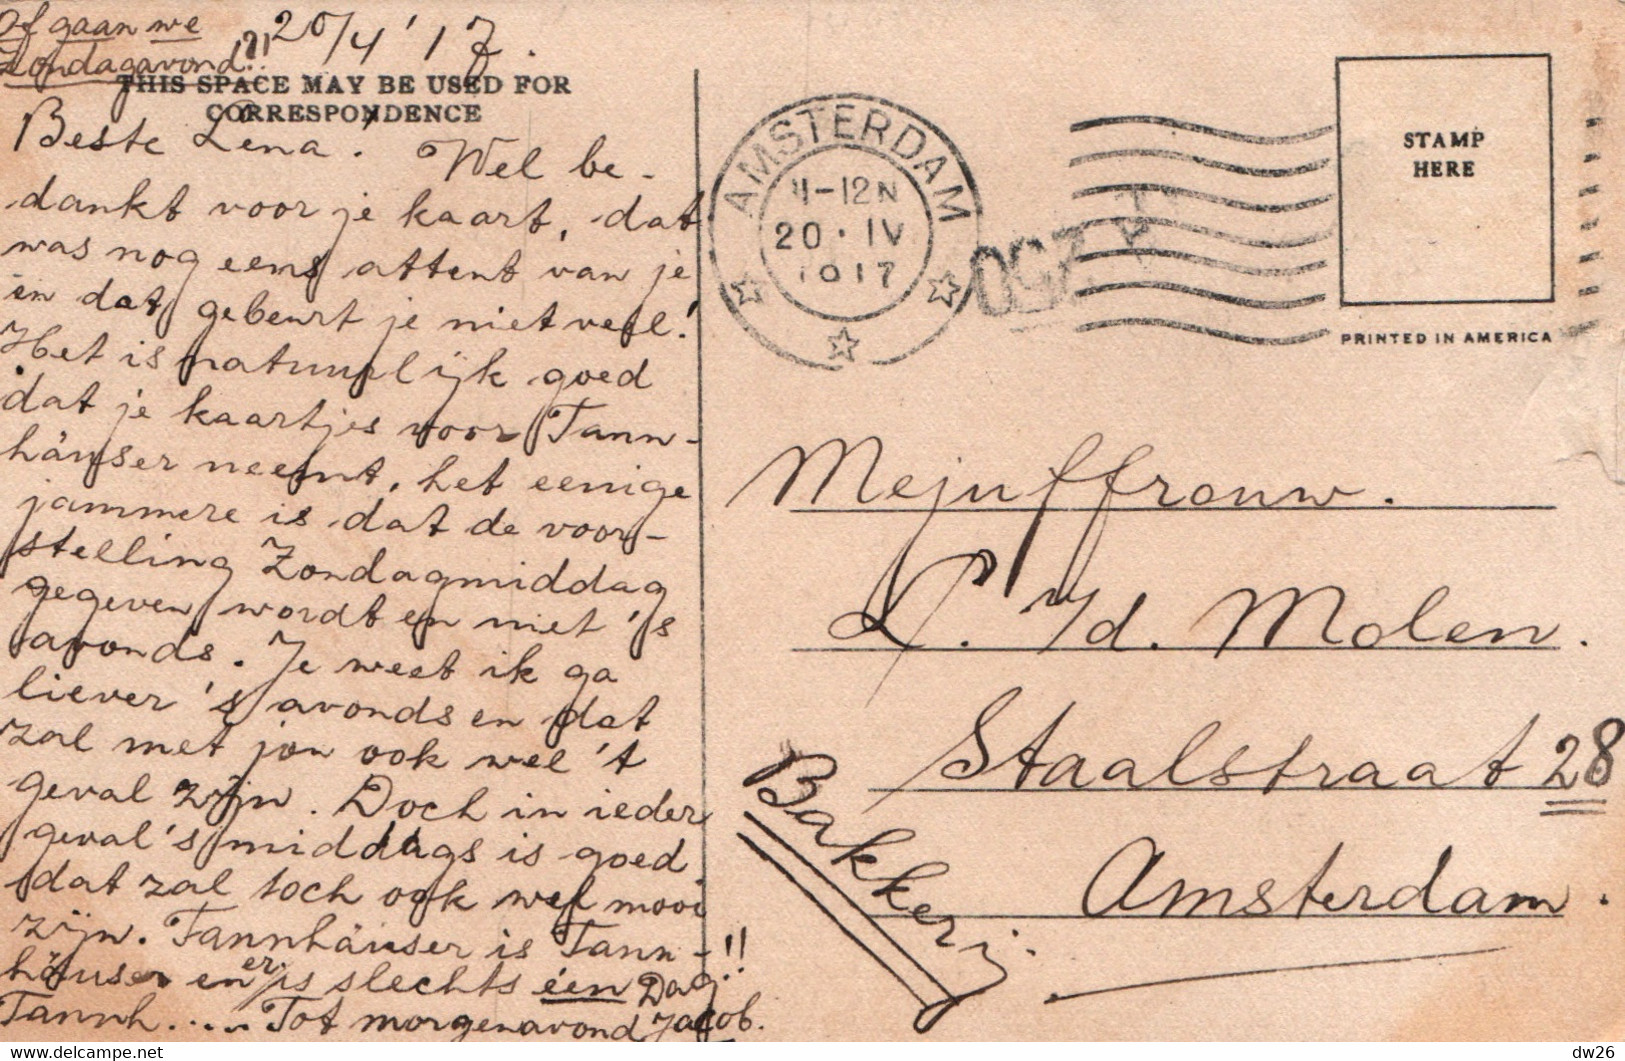 Of gaan we
Zondagavond!?!
20/4 '17.
THIS SPACE MAY BE USED FOR
CORRESPONDENCE
Beste Lena! Wel be-
dankt voor je kaart, dat
was nog eens attent van je
en dat gebeurt je niet veel!
Het is natuurlijk goed
dat je kaartjes voor Tann-
häuser neemt, het eenige
jammere is dat de voor-
stelling Zondagmiddag
gegeven wordt en niet 's
avonds. Je weet ik ga
liever 's avonds en dat
zal met jou ook wel 't
geval zijn. Doch in ieder
geval 's middags is goed
dat zal toch ook wel mooi
zijn. Tannhäuser is Tann-
häuser en er is slechts één Dag!!
Tannh..... Tot morgenavond Jacob.
AMSTERDAM
11-12N
20.IV
1917
STAMP
HERE
PRINTED IN AMERICA
Mejuffrouw.
L. v/d. Molen.
Staalstraat 28
Bakkerij
Amsterdam.
delcampe.net
dw26